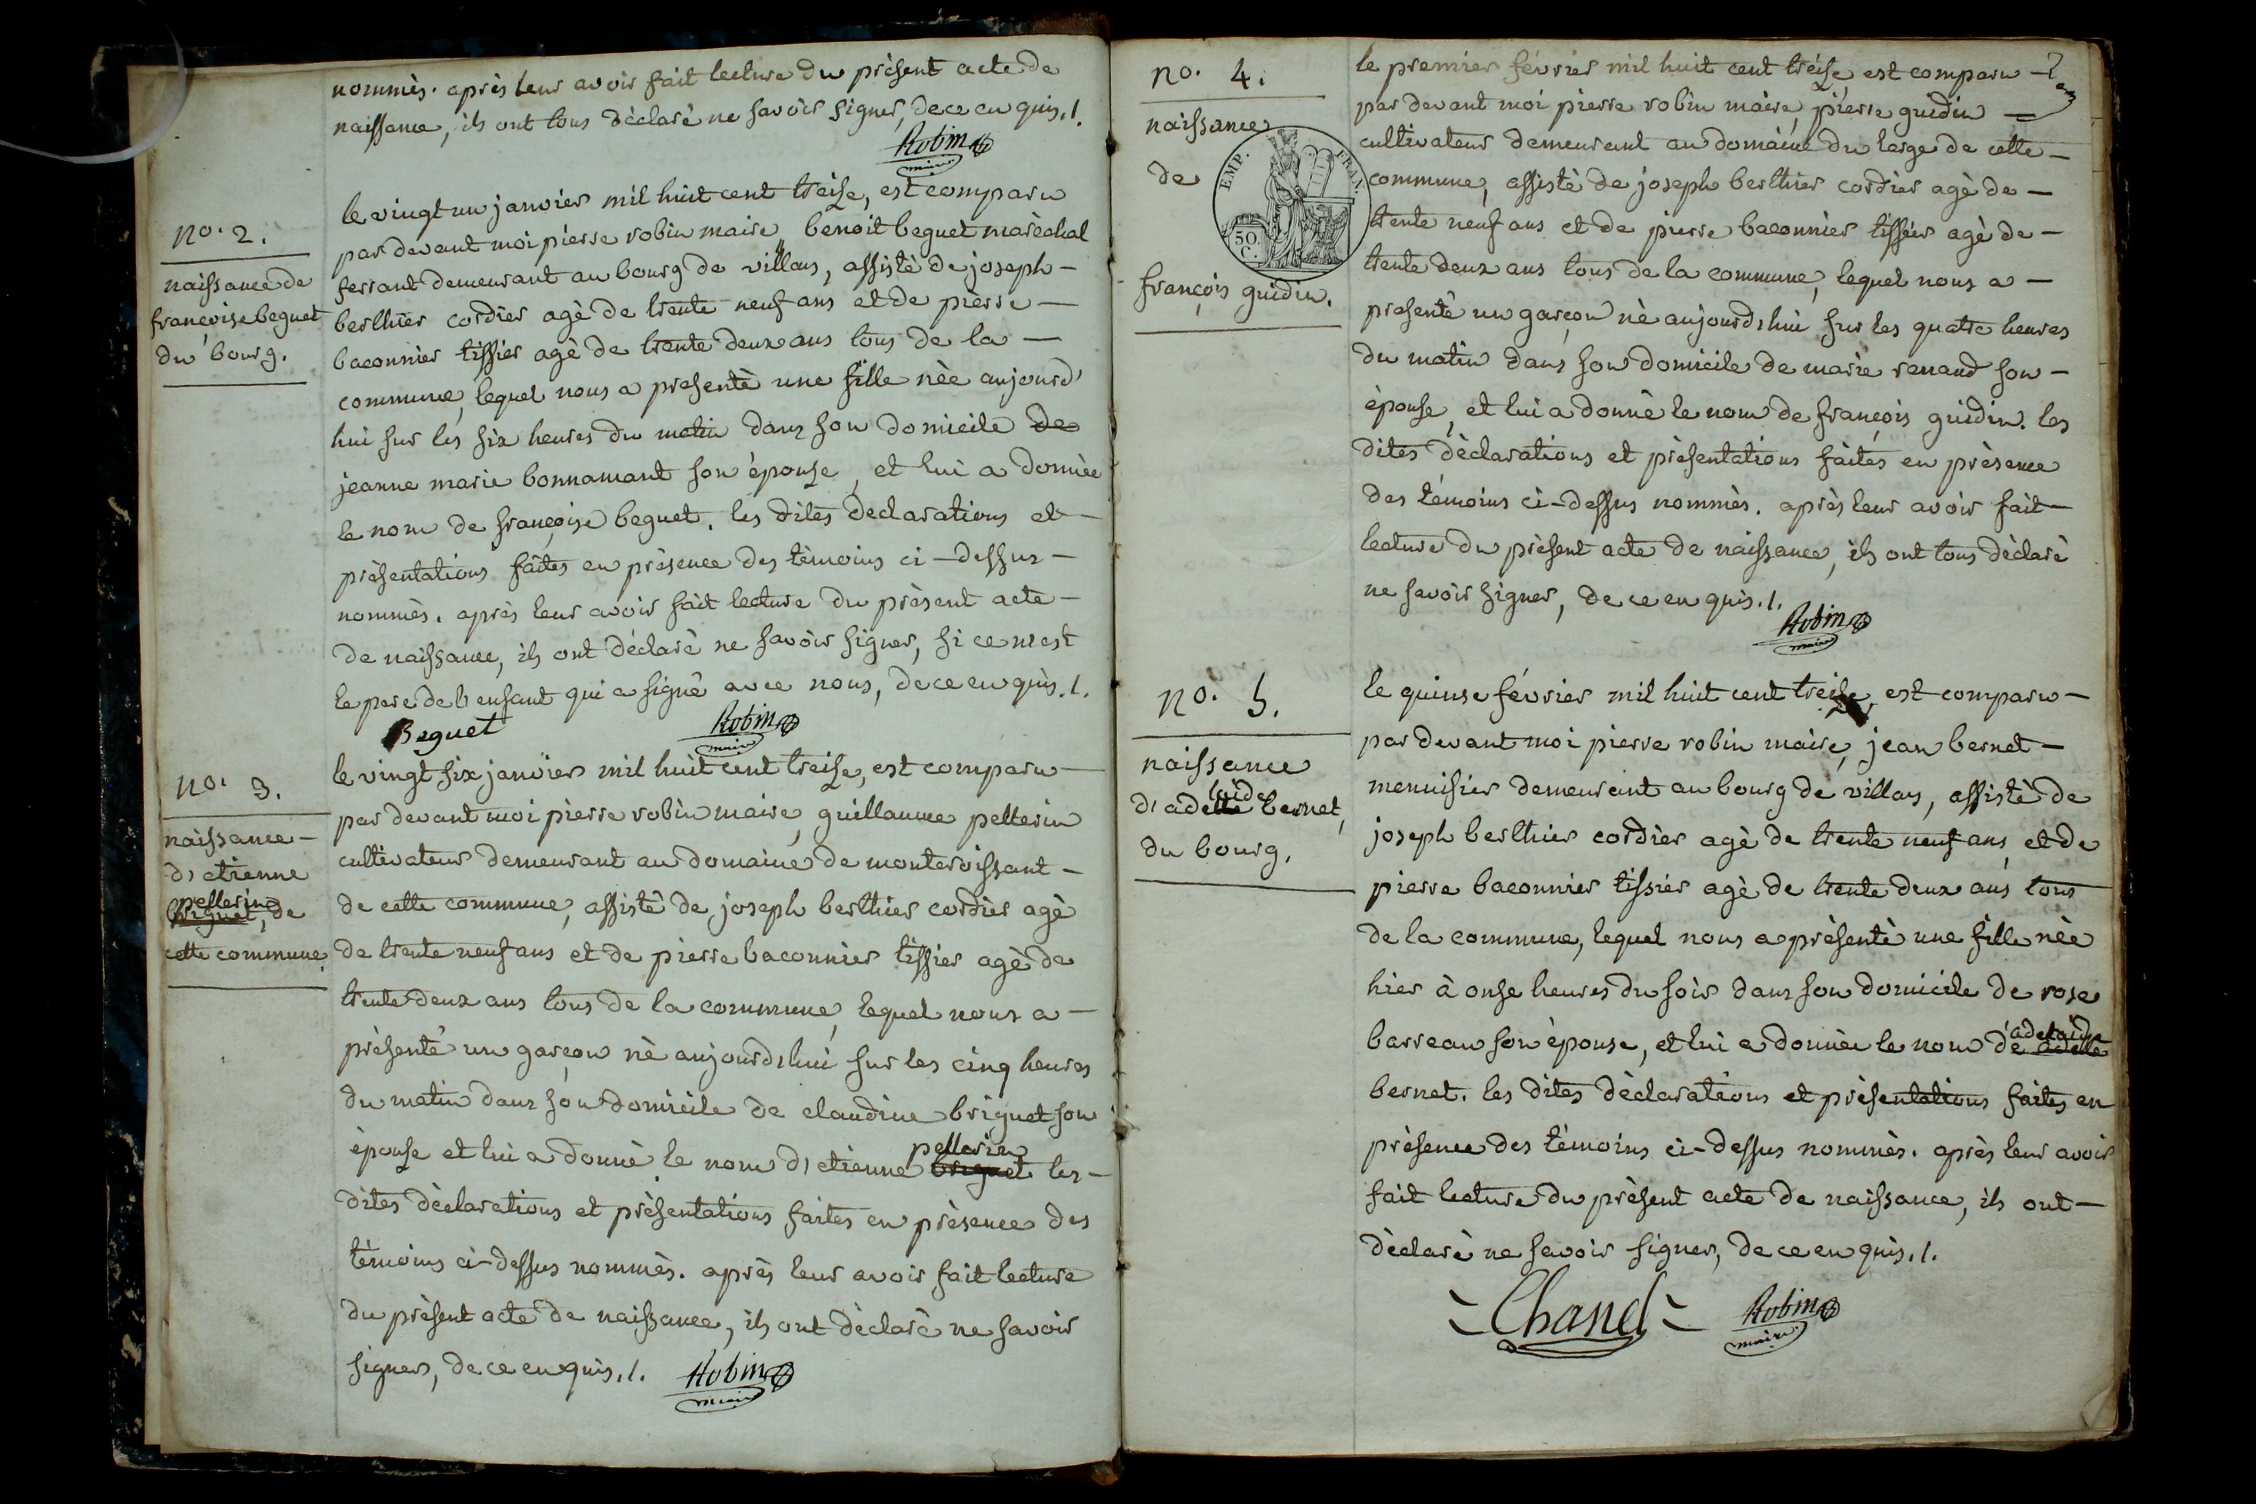 nommès. après leur avoir fait lecture du présent acte de
naissance, ils ont tous dèclarè ne savoir signer, de ce enquis./.
Robin
maire
no. 2.
naissance de
françoise beguet
du bourg.
le vingt un janvier mil huit cent treize, est comparu
par devant moi pierre robin maire, benoit beguet marèchal
ferrant demeurant au bourg de villars, assistè de joseph –
berthier cordier agè de trente neuf ans et de pierre –
baconnier tissier agè de trente deux ans tous de la –
commune, lequel nous a presentè une fille nèe aujourd'
hui sur les six heures du matin dans son domicile de
jeanne marie bonnamant son èpouse, et lui a donnèe
le nom de françoise beguet. les dites declarations et –
prèsentations faites en prèsence des tèmoins ci-dessus –
nommès. après leur avoir fait lecture du prèsent acte –
de naissance, ils ont dèclarè ne savoir signer, si ce n'est
le pere de l'enfant qui a signè avec nous, de ce enquis./.
Beguet
Robin
maire
no. 3.
naissance –
d'etienne
pellerin
briguet, de
cette commune.
le vingt six janvier mil huit cent treise, est comparu –
par devant moi pierre robin maire, guillaume pellerin
cultivateur demeurant au domaine de monteroissant –
de cette commune, assistè de joseph berthier cordier agè
de trente neuf ans et de pierre baconnier tissier agè de
trente deux ans tous de la commune, lequel nous a –
prèsentè un garçon nè aujourd'hui sur les cinq heures
du matin dans son domicile de claudine briguet son
èpouse et lui a donnè le nom d'etienne briguet pellerin les –
dites dèclarations et prèsentations faites en prèsence des
tèmoins ci-dessus nommès. après leur avoir fait lecture
du prèsent acte de naissance, ils ont dèclarè ne savoir
signer, de ce enquis./.
Robin
maire
no. 4.
naissance
de
françois guidin.
EMP. FRAN.
50.
C.
le premier fèvrier mil huit cent treise est comparu –
par devant moi pierre robin maire, pierre guidin –
cultivateur demeurant au domaine du large de cette –
commune, assistè de joseph berthier cordier agè de –
trente neuf ans et de pierre baconnier tissier agè de –
trente deux ans tous de la commune, lequel nous a –
presentè un garçon nè aujourd'hui sur les quatre heures
du matin dans son domicile de marie renand son –
èpouse, et lui a donnè le nom de françois guidin. les
dites dèclarations et prèsentations faites en prèsence
des tèmoins ci-dessus nommès. après leur avoir fait –
lecture du prèsent acte de naissance, ils ont tous dèclarè
ne savoir signer, de ce enquis./.
Robin
maire
no. 5.
naissance
laide
d'adelle bernet,
du bourg.
le quinse fèvrier mil huit cent treise, est comparu –
par devant moi pierre robin maire, jean bernet –
menuisier demeurant au bourg de villars, assistè de
joseph berthier cordier agè de trente neuf ans et de
pierre baconnier tissier agè de trente deux ans tous
de la commune, lequel nous a prèsentè une fille nèe
hier à onse heures du soir dans son domicile de rose
barreau son èpouse, et lui a donnèe le nom de adelle adelaide
bernet. les dites dèclarations et prèsentations faites en
prèsence des tèmoins ci-dessus nommès. après leur avoir
fait lecture du prèsent acte de naissance, ils ont –
dèclarè ne savoir signer, de ce enquis./.
Chanel
Robin
maire